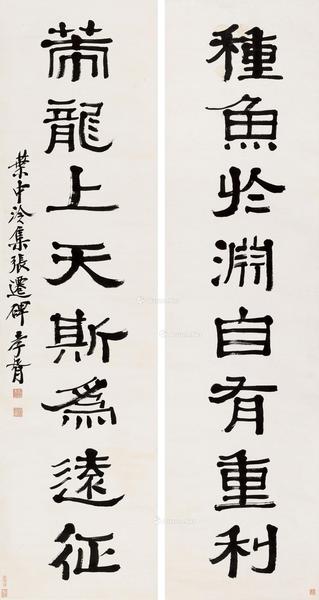 種魚於淵自有重利
芾龍上天斯為遠征
葉中泠集張遷碑孝胥